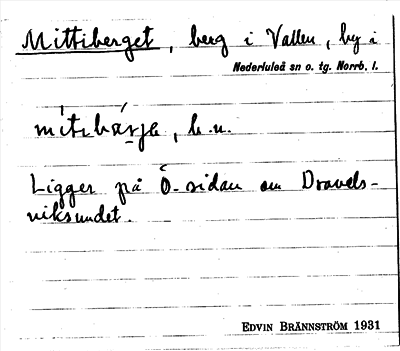 Mittiberget, berg i Vallen, by i
Nederluleå sn o. tg. Norrb. l.
b. n.
Ligger på Ö-sidan om Dravels-
viksundet.
EDVIN BRÄNNSTRÖM 1931